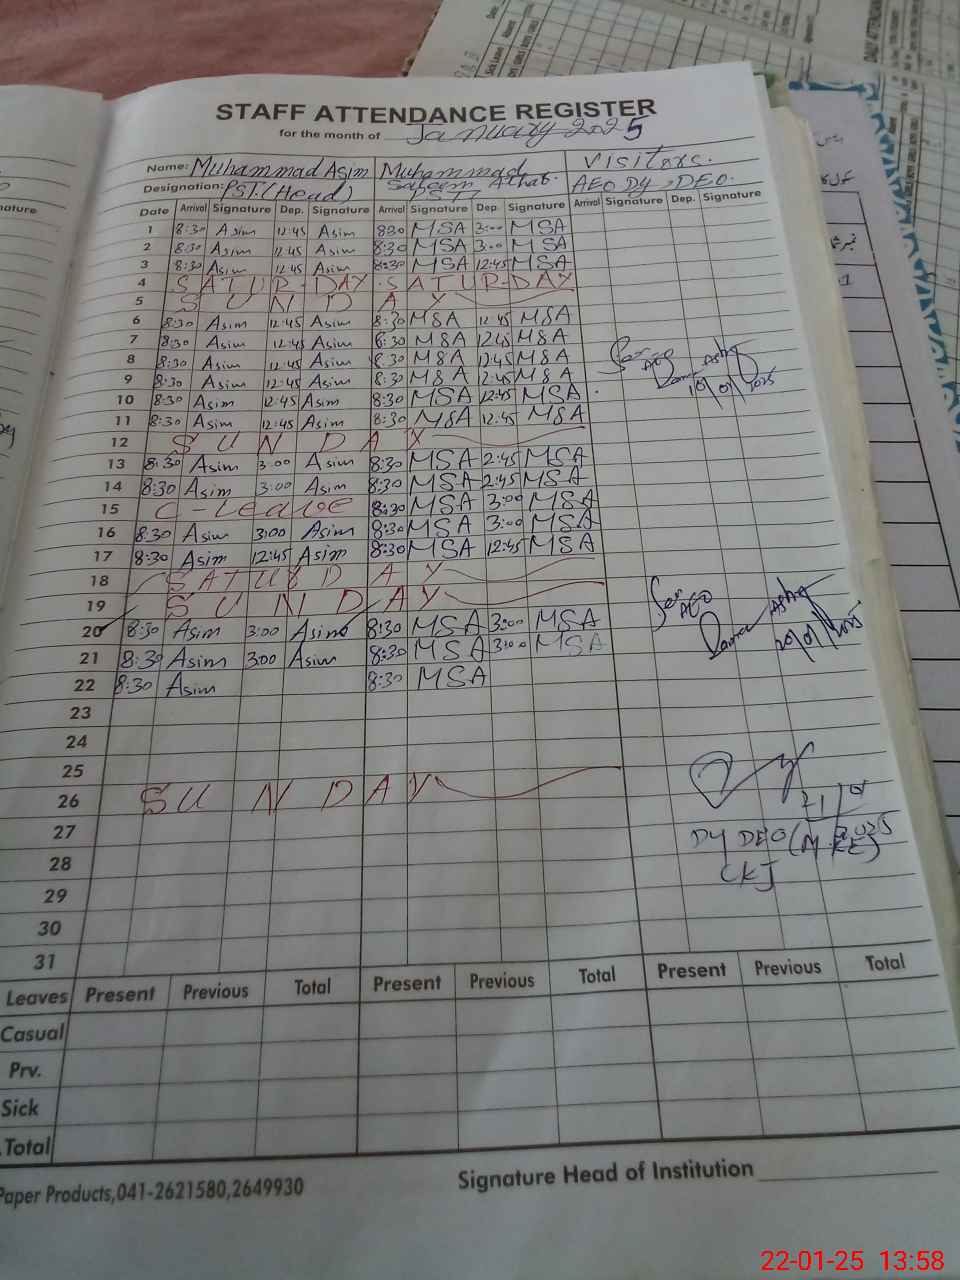 STAFF ATTENDANCE REGISTER
for the month of January 2025
Name: Muhammad Asim Muhammad Visitors.
Designation: PST (Head) Saleem AEO Dy DEO.
Date Arrival Signature Dep. Signature Arrival Signature Dep. Signature Arrival Signature Dep. Signature
1 8:30 Asim 12:45 Asim 8:30 MSA 3:00 MSA
2 8:30 Asim 12:45 Asim 8:30 MSA 3:00 MSA
3 8:30 Asim 12:45 Asim 8:30 MSA 12:45 MSA
4 SATUR-DAY. SATUR-DAY
5 SUNDAY
6 8:30 Asim 12:45 Asim 8:30 MSA 12:45 MSA
7 8:30 Asim 12:45 Asim 8:30 MSA 12:45 MSA
8 8:30 Asim 12:45 Asim 8:30 MSA 12:45 MSA
9 8:30 Asim 12:45 Asim 8:30 MSA 12:45 MSA
10 8:30 Asim 12:45 Asim 8:30 MSA 12:45 MSA
11 8:30 Asim 12:45 Asim 8:30 MSA 12:45 MSA
12 SUNDAY
13 8:30 Asim 3:00 Asim 8:30 MSA 2:45 MSA
14 8:30 Asim 3:00 Asim 8:30 MSA 2:45 MSA
15 C-Leave 8:30 MSA 3:00 MSA
16 8:30 Asim 3:00 Asim 8:30 MSA 3:00 MSA
17 8:30 Asim 12:45 Asim 8:30 MSA 12:45 MSA
18 SATURDAY
19 SUNDAY
20 8:30 Asim 3:00 Asim 8:30 MSA 3:00 MSA
21 8:30 Asim 3:00 Asim 8:30 MSA 3:00 MSA
22 8:30 Asim 8:30 MSA
23
24
25
26 SUNDAY
27
28
29
30
31
AEO
10/01/2025
AEO
20/01/2025
21/01
2025
DY DEO (M.EE)
CKJ
Leaves Present Previous Total Present Previous Total Present Previous Total
Casual
Prv.
Sick
Total
Paper Products,041-2621580,2649930
Signature Head of Institution
22-01-25 13:58